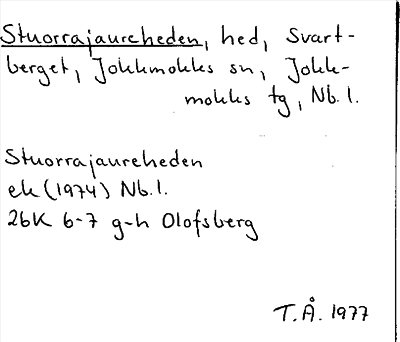 Stuorrajaureheden, hed, Svart-
berget, Jokkmokks sn, Jokk-
mokks tg, Nb.l.
Stuorrajaureheden
ek (1974) Nb.l.
26K 6-7 g-h Olofsberg
T.Å. 1977